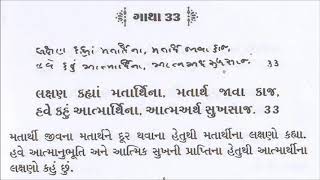 ગાથા 33
લક્ષણ કહ્યાં મતાર્થિના, મતાર્થ જાવા કાજ,
હવે કહું આત્માર્થિના, આત્મઅર્થ સુખસાજ. 33
લક્ષણ કહ્યાં મતાર્થિના, મતાર્થ જાવા કાજ,
હવે કહું આત્માર્થિના, આત્મઅર્થ સુખસાજ. 33
મતાર્થી જીવના મતાર્થને દૂર થવાના હેતુથી મતાર્થીના લક્ષણો કહ્યા.
હવે આત્માનુભૂતિ અને આત્મિક સુખની પ્રાપ્તિના હેતુથી આત્માર્થીના
લક્ષણો કહું છું.